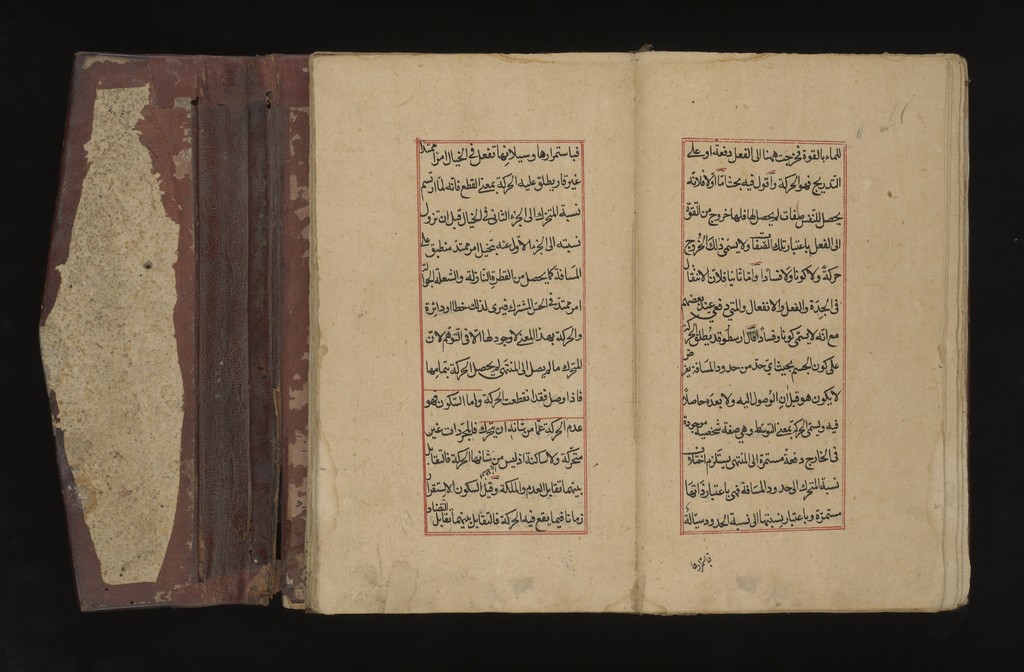 للماء بالقوة فخرجت منها الى الفعل دفعة او على
التدريج فهو الحركة وأقول فيه بحث اما اولا فلانه
يحصل للنفس صفات لم يحصل لها فلها خروج من القوة
الى الفعل باعتبار تلك الصفات ولا يسمى ذلك الخروج
حركة ولا كونا ولا فسادا واما ثانيا فلان الانتقال
فى الجدة والفعل والانفعال والمتى دفعى عند بعضهم
مع انه لا يسمى كونا وفسادا قال ارسطو قد يطلق الحركة
على كون الجسم بحيث اى حد من حدود المسافة يفرض
لا يكون هو قبل ان الوصول اليه ولا بعده حاصلا
فيه ويسمى الحركة بمعنى التوسط وهى صفة شخصية موجودة
فى الخارج دفعة مستمرة الى المنتهى يستلزم اختلاف
نسبة المتحرك الى حدود المسافة فهى باعتبار ذاتها
مستمرة وباعتبار نسبتها الى نسبة الحدود سيالة
فباستمرارها
فباستمرارها وسيلانها تفعل فى الخيال امرا ممتدا
غير قار يطلق عليه الحركة بمعنى القطع فانه لما ارتسم
نسبة المتحرك الى الجزء الثانى فى الخيال قبل ان تزول
نسبته الى الجزء الاول عنه يتخيل امر ممتد منطبق على
المسافة كما يحصل من القطرة النازلة والشعلة الجوالة
امر ممتد فى الحس المشترك فيرى لذلك خطا او دائرة
والحركة بهذا المعنى لا وجود لها الا فى التوهم لان
المتحرك ما لم يصل الى المنتهى لم يحصل الحركة بتمامها
فاذا وصل فقد انقطعت الحركة واما السكون فهو
عدم الحركة عما من شانه ان يتحرك فالمجردات غير
متحركة ولا ساكنة اذ ليس من شانها الحركة فالتقابل
بينهما تقابل العدم والملكة وقيل السكون الاستقرار
زمانا فيما يقع فيه الحركة فالتقابل بينهما تقابل التضاد